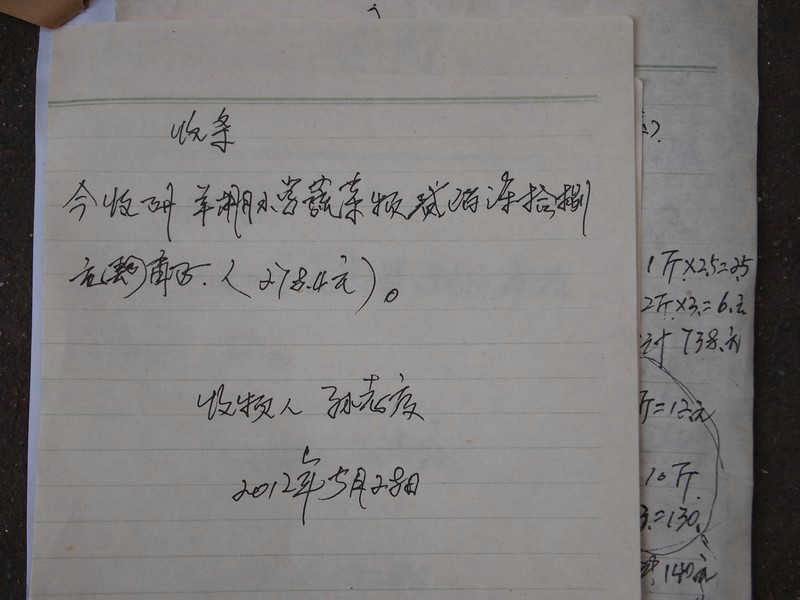 收条
今收到羊湖小学蔬菜款贰佰柒拾捌
元肆角正.(278.4元)。
收款人 孙志度
2012年5月28日
1斤×25=25
2斤×3.=6.元
计 738.元
斤=12元
10斤
3.=130.
140元